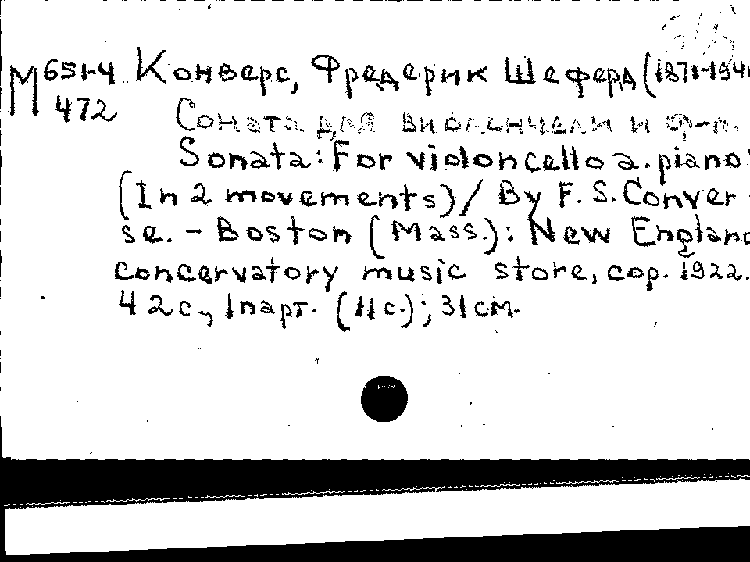 М 651-4 Конверс, Фредерик Шеферд (1871-194
472 Соната для виолончели и ф-п.
Sonata: For violoncello a. piano:
(In 2 movements) / By F. S. Conver-
se. - Boston (Mass.): New England
concervatory music store, cop. 1922.
42 с., 1 парт. (11 с.); 31 см.